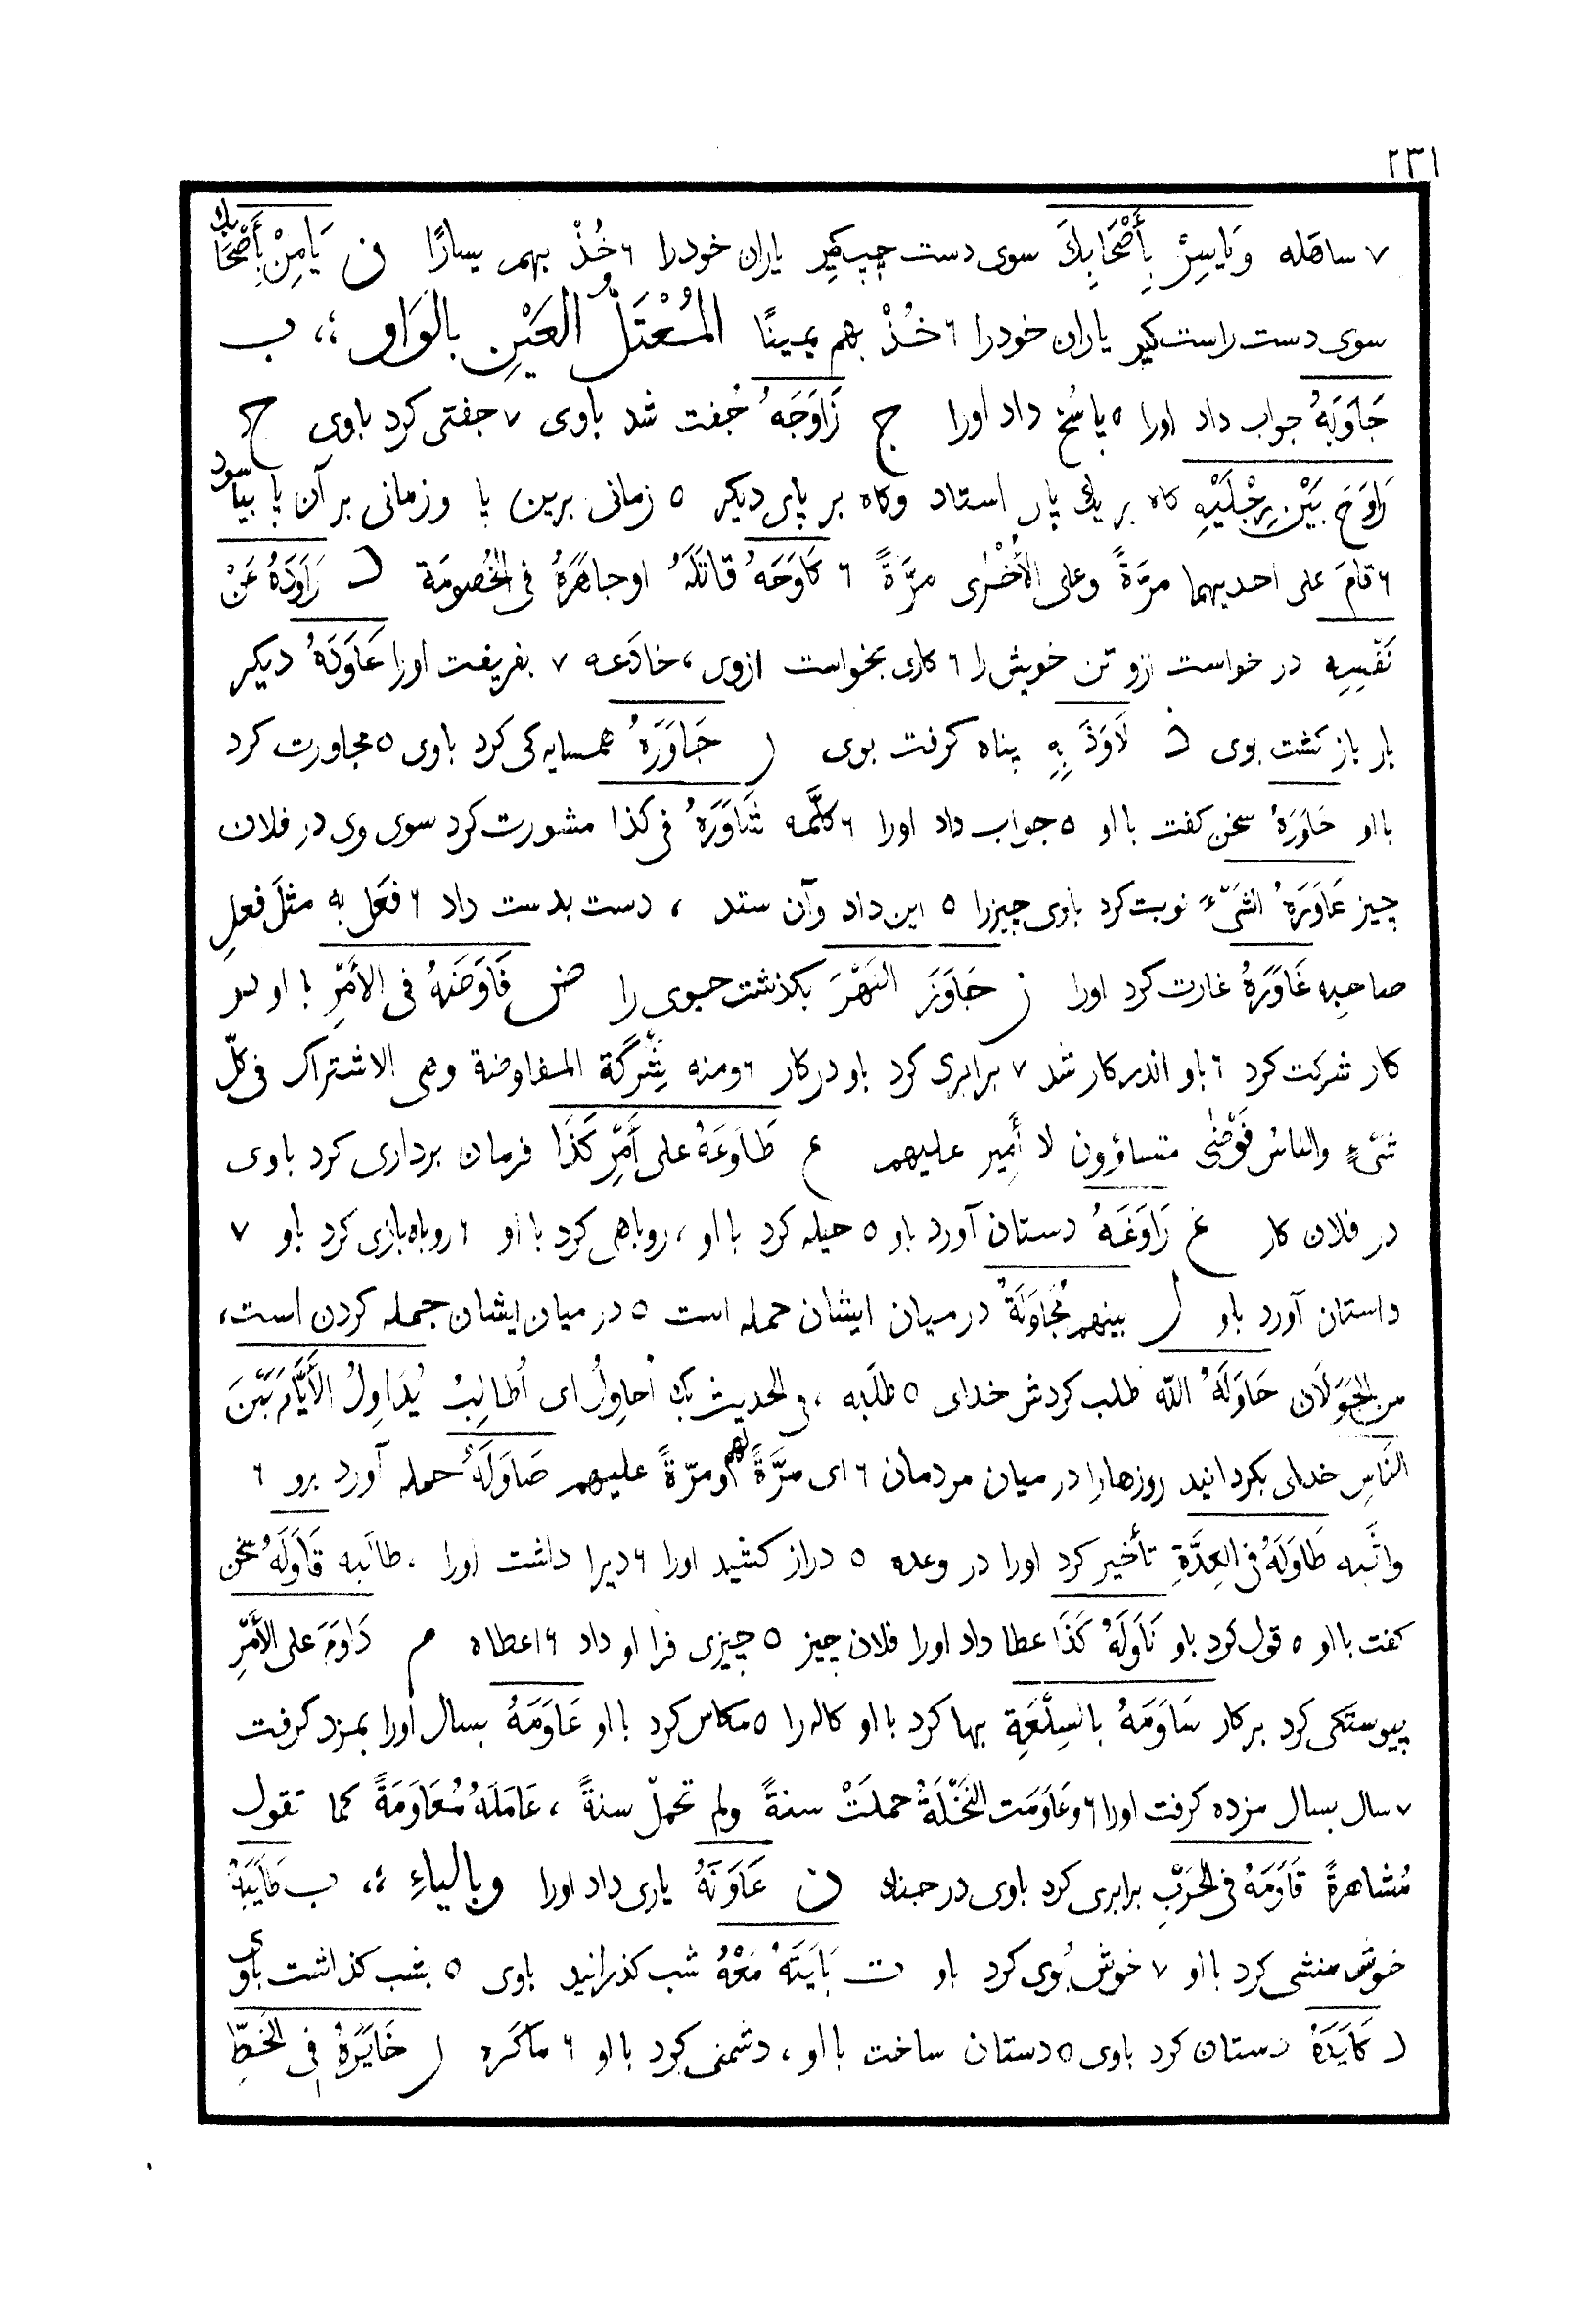 ٢٣١
٧ ساهله وَيَاسِرْ بِأَصْحَابِكَ سوى دست چپ كير ياران خودرا ٦ خُذْ بهم يسارًا ن يَامِنْ بِأَصْحَابِكَ
سوى دست راست كير ياران خودرا ٦ خُذْ بهم يمينًا المُعْتَلُّ العَيْنِ بالوَاوِ ؛، ب
جَاوَبَهُ جواب داد اورا ٥ پاسُخ داد اورا ج زَاوَجَهُ جُفت شد باوى ٧ جفتى كرد باوى ح
رَاوَحَ بَيْنَ رِجْلَيْهِ كاه بر يك پاى استاد وكاه بر پاى ديكر ٥ زمانى برين پا وزمانى بر آن پا بياسود
٦ قامَ على احديهما مرّةً وعلى الأُخْرٰى مرَّةً ٦ كَاوَحَهُ قاتَلَهُ اوجاهَرَهُ فى الخُصومَة د رَاوَدَهُ عَنْ
نَفْسِهِ در خواست ازو تن خويش را ٦ كارى بخواست ازوى، خادَعه ٧ بفريفت اورا عَاوَدَهُ ديكر
بار باز كشت بوى ذ لَاوَذَ بِهِ پناه كرفت بوى ر جَاوَرَهُ همسايه كى كرد باوى ٥ مجاورت كرد
با او حَاوَرَهُ سخن كفت با او ٥ جواب داد اورا ٦ كلَّمه شَاوَرَهُ فى كذا مشورت كرد سوى وى در فلان
چيز عَاوَرَهُ الشَىْءَ نوبت كرد باوى چيزرا ٥ اين داد وآن ستد ، دست بدست داد ٦ فعَل به مثلَ فعلِ
صاحبه غَاوَرَهُ غارت كرد اورا ز جَاوَزَ النَهْرَ بكذشت جوى را ض فَاوَضَهُ فى الأَمْرِ با او
كار شركت كرد ٦ باو اندر كار شد ٧ برابرى كرد باو در كار ٦ ومنه شِرْكَة المفاوضة وهى الاشتراك فى كلّ
شَىْءٍ والناسُ فَوْضٰى متساوُون لا أَمِير عليهم ع طَاوَعَهُ على أَمْرِ كَذَا فرمان بردارى كرد باوى
در فلان كار غ رَاوَغَهُ دستان آورد باو ٥ حيله كرد با او ، روباهى كرد با او ٦ روباه بازى كرد باو ٧
داستان آورد باو ل بينهم مُجَاوَلَةٌ در ميان ايشان حمله است ٥ در ميان ايشان جمله كردن است،
من الجَوَلَان حَاوَلَهُ الله طلب كردش خداى ٥ طلَبه ، فى الحديث بك أُحاوِلُ اى أُطالِبُ يُدَاوِلُ الأَيَّامَ بَيْنَ
النَاسِ خداى بكردانيد روزهارا در ميان مردمان ٦ اى مرَّةً لهم ومرّةً عليهم صَاوَلَهُ حمله آورد برو ٦
واثَبه طَاوَلَهُ فى العِدَّةِ تأخير كرد اورا در وعده ٥ دراز كشيد اورا ٦ ديرا داشت اورا ، طالَبه قَاوَلَهُ سخن
كفت با او ٥ قول كرد باو نَاوَلَهُ كَذَا عطا داد اورا فلان چيز ٥ چيزى فرا او داد ٦ اعطاه م دَاوَمَ على الأَمْرِ
پيوستكى كرد بر كار سَاوَمَهُ بالسِلْعَةِ بها كرد با او كاله را ٥ مكاس كرد با او عَاوَمَهُ بسال اورا بمزد كرفت
٧ سال بسال مزده كرفت اورا ٦ وعَاوَمَت النَخْلَةُ حملَتْ سنةً ولم تحمِلْ سنةً ، عَامَلَهُ مُعَاوَمَةً كما تقول
مُشاهرةً قَاوَمَهُ فى الحَرْبِ برابرى كرد باوى در جنك ن عَاوَنَهُ يارى داد اورا وبالياءِ ؛، ب طَايَبَهُ
خوش منشى كرد با او ٧ خوش بُوى كرد باو ت بَايَتَهُ مَعْهُ شب كذرانيد باوى ٥ بشب كذاشت باوى
د كَايَدَهُ دستان كرد باوى ٥ دستان ساخت با او ، دشمنى كرد با او ٦ ماكَره ر خَايَرَهُ فى الخَطِّ